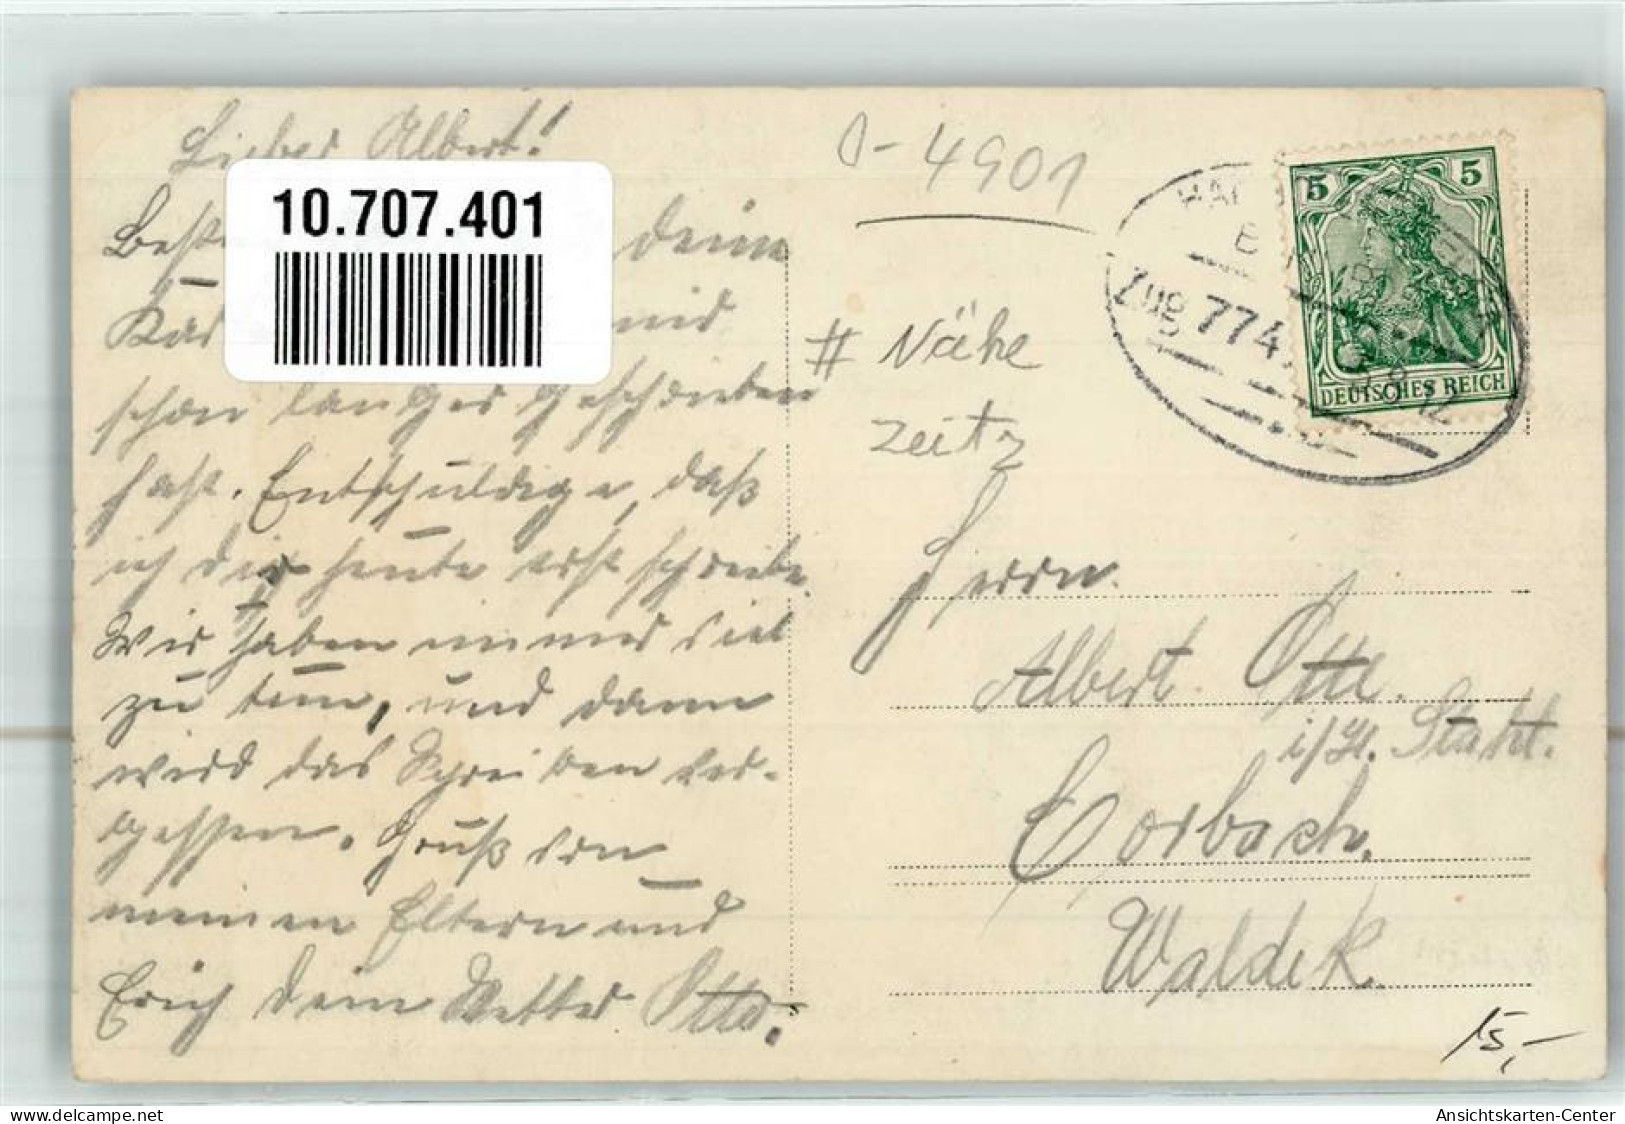 Lieber Albert!
Besten
deine
mir
schon langes geschrieben
hast. Entschuldige, daß
ich dir heute erst schreibe.
Wir haben immer viel
zu tun, und dann
wird das Schreiben ver-
gessen. Gruß von
meinen Eltern und
Erich dein Vetter Otto.
10.707.401
0-4901
# Nähe
Zeitz
Zug 774
5 5
DEUTSCHES REICH
Herrn
Albert Otte.
Corbach.
Waldek.
15,-
www.delcampe.net
Ansichtskarten-Center